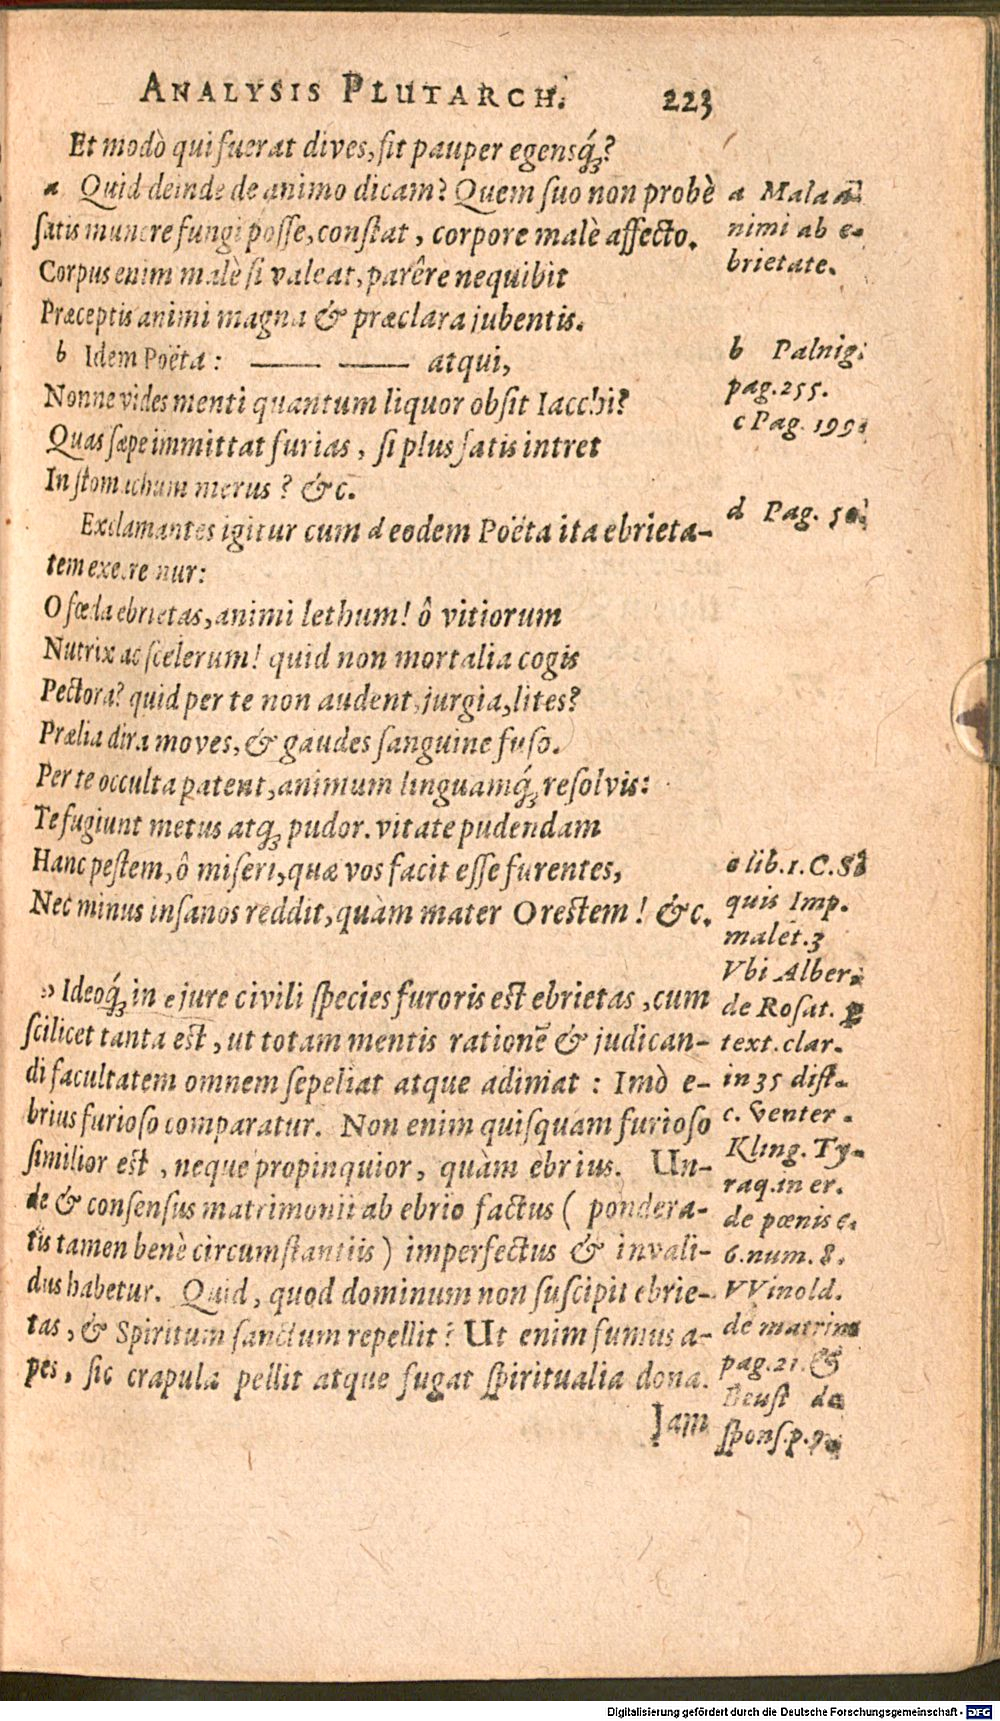 ANALYSIS PLUTARCH. 223
Et modò qui fuerat dives, fit pauper egensq́;?
a Quid deinde de animo dicam? Quem suo non probè
satis munere fungi posse, constat, corpore malè affecto.
Corpus enim malè si valeat, parêre nequibit
Præceptis animi magna & præclara jubentis.
b Idem Poëta: —— —— atqui,
Nonne vides menti quantum liquor obsit Iacchi?
Quas sæpe immittat furias, si plus satis intret
In stomachum merus? &c.
Exclamantes igitur cum d eodem Poëta ita ebrieta-
tem exe
O fœda ebrietas, animi lethum! ô vitiorum
Nutrix ac scelerum! quid non mortalia cogis
Pectora? quid per te non audent, jurgia, lites?
Prælia dira moves, & gaudes sanguine fuso.
Per te occulta patent, animum linguamq́; resolvis:
Te fugiunt metus atq; pudor. vitate pudendam
Hanc pestem, ô miseri, quæ vos facit esse furentes,
Nec minus insanos reddit, quàm mater Orestem! &c.
» Ideoq́; in e jure civili species furoris est ebrietas, cum
scilicet tanta est, ut totam mentis rationē & judican-
di facultatem omnem sepeliat atque adimat: Imò e-
brius furioso comparatur. Non enim quisquam furioso
similior est, neque propinquior, quàm ebrius. Un-
de & consensus matrimonii ab ebrio factus ( pondera-
tis tamen benè circumstantiis ) imperfectus & invali-
dus habetur. Quid, quod dominum non suscipit ebrie-
tas, & Spiritum sanctum repellit? Ut enim fumus a-
pes, sic crapula pellit atque fugat spiritualia dona.
Jam
a Mala a-
nimi ab e-
brietate.
b Palnig:
pag. 255.
c Pag. 199
d Pag. 50
e lib. 1. C. Si
quis Imp.
malet. 3
Vbi Alber.
de Rosat. p
text. clar.
in 35 dist.
c. venter.
Kling. Ty-
raq. in er.
de pœnis c.
6. num. 8.
VVinold.
de matrim
pag. 21. &
Beust de
spons. p.
Digitalisierung gefördert durch die Deutsche Forschungsgemeinschaft - DFG